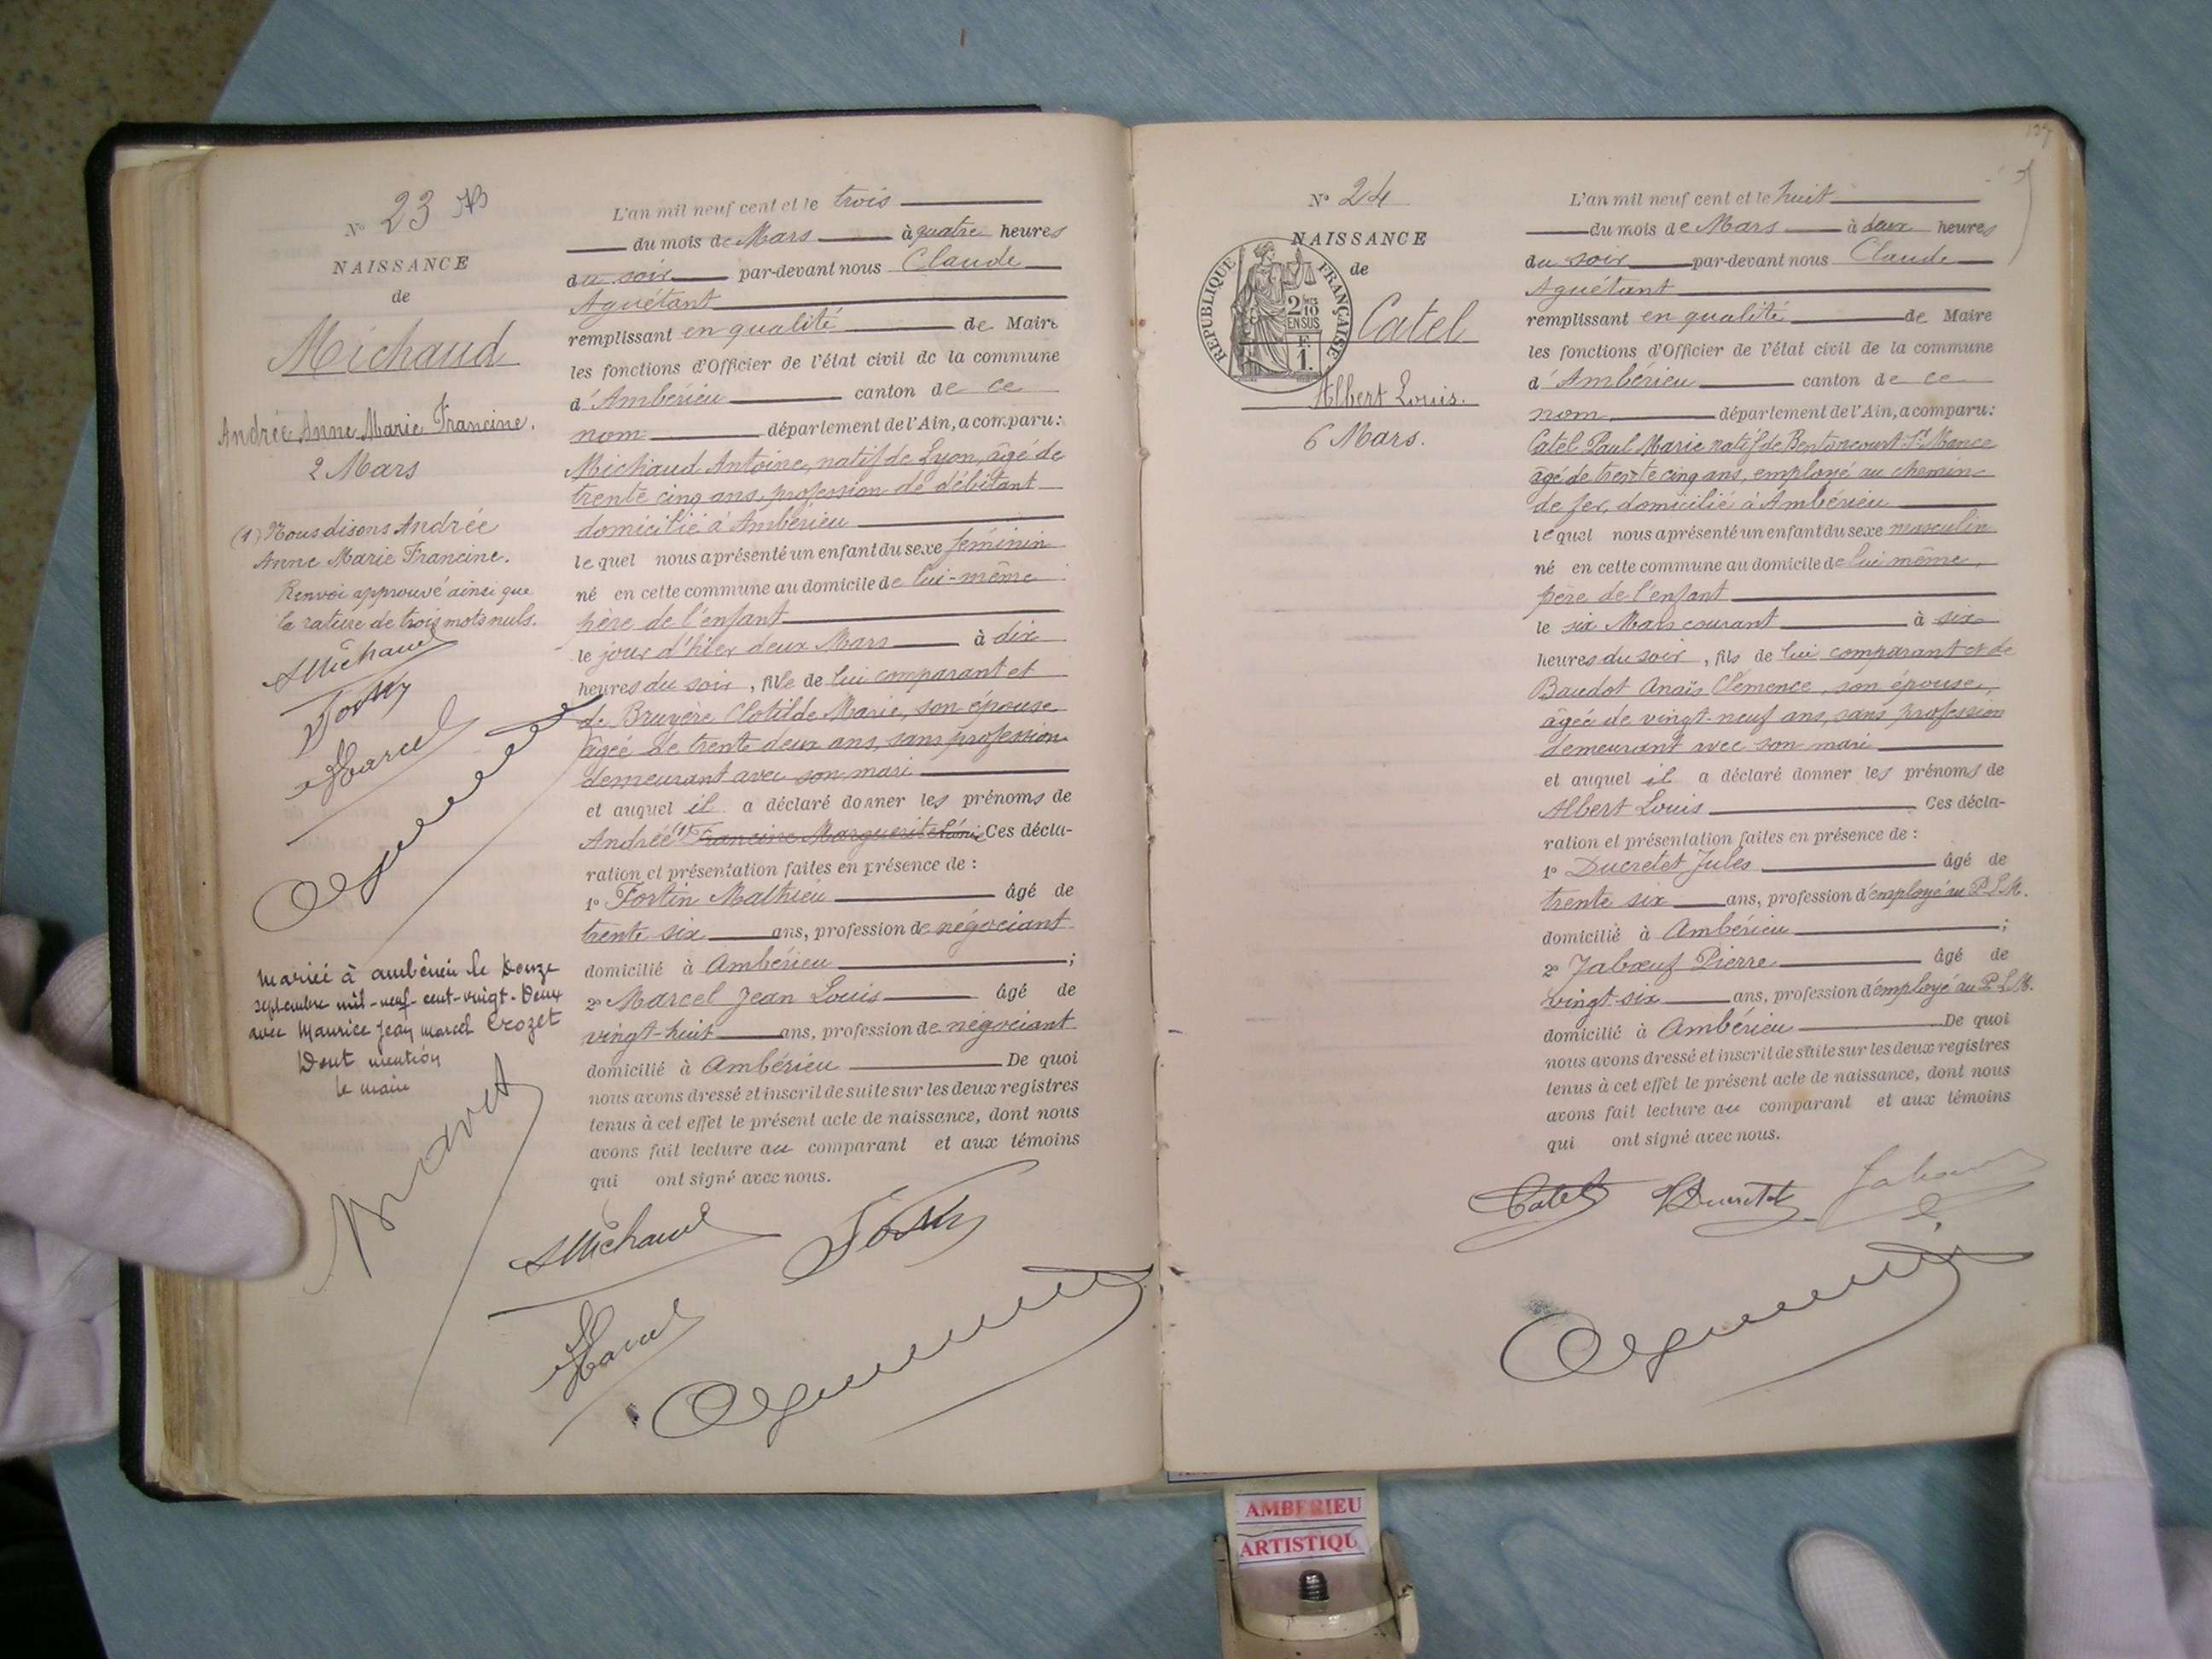 N° 23
NAISSANCE
de
Michaud
Andrée Anne Marie Francine.
2 Mars
(1) Nous disons Andrée
Anne Marie Francine.
Renvoi approuvé ainsi que
la rature de trois mots nuls.
AMichaud
Marcel
Mariée à Ambérieu le Douze
septembre mil-neuf-cent-vingt-Deux
avec Maurice Jean Marcel Crozet
Dont mention
le maire
L'an mil neuf cent et le trois
du mois de Mars à quatre heures
du soir par-devant nous Claude
Aguétant
remplissant en qualité de Maire
les fonctions d'Officier de l'état civil de la commune
d'Ambérieu canton de ce
nom département de l'Ain, a comparu:
Michaud Antoine, natif de Lyon, âgé de
trente cinq ans, profession de débitant
domicilié à Ambérieu
lequel nous a présenté un enfant du sexe féminin
né en cette commune au domicile de lui-même
père de l'enfant
le jour d'hier deux Mars à dix
heures du soir, fille de lui comparant et
de Bruyère Clotilde Marie, son épouse
âgée de trente deux ans, sans profession
demeurant avec son mari
et auquel il a déclaré donner les prénoms de
Andrée (1) Francine Marguerite Ces décla-
ration et présentation faites en présence de :
1° Fortin Mathieu âgé de
trente six ans, profession de négociant
domicilié à Ambérieu ;
2° Marcel Jean Louis âgé de
vingt-huit ans, profession de négociant
domicilié à Ambérieu De quoi
nous avons dressé et inscrit de suite sur les deux registres
tenus à cet effet le présent acte de naissance, dont nous
avons fait lecture au comparant et aux témoins
qui ont signé avec nous.
AMichaud
Marcel
N° 24
NAISSANCE
de
RÉPUBLIQUE FRANÇAISE
2/10
EN SUS
F.
1.
Catel
Albert Louis.
6 Mars.
L'an mil neuf cent et le huit
du mois de Mars à deux heures
du soir par-devant nous Claude
Aguétant
remplissant en qualité de Maire
les fonctions d'Officier de l'état civil de la commune
d'Ambérieu canton de ce
nom département de l'Ain, a comparu:
Catel Paul Marie natif de
âgé de trente cinq ans, employé au chemin
de fer, domicilié à Ambérieu
lequel nous a présenté un enfant du sexe masculin
né en cette commune au domicile de lui même,
père de l'enfant
le six Mars courant à six
heures du soir, fils de lui comparant et de
Baudot Anaïs Clémence, son épouse,
âgée de vingt-neuf ans, sans profession
demeurant avec son mari
et auquel il a déclaré donner les prénoms de
Albert Louis Ces décla-
ration et présentation faites en présence de :
1° Ducretet Jules âgé de
trente six ans, profession d'employé au P.L.M.
domicilié à Ambérieu ;
2° Jabœuf Pierre âgé de
vingt-six ans, profession d'employé au P.L.M.
domicilié à Ambérieu De quoi
nous avons dressé et inscrit de suite sur les deux registres
tenus à cet effet le présent acte de naissance, dont nous
avons fait lecture au comparant et aux témoins
qui ont signé avec nous.
Catel
AMBERIEU
ARTISTIQU